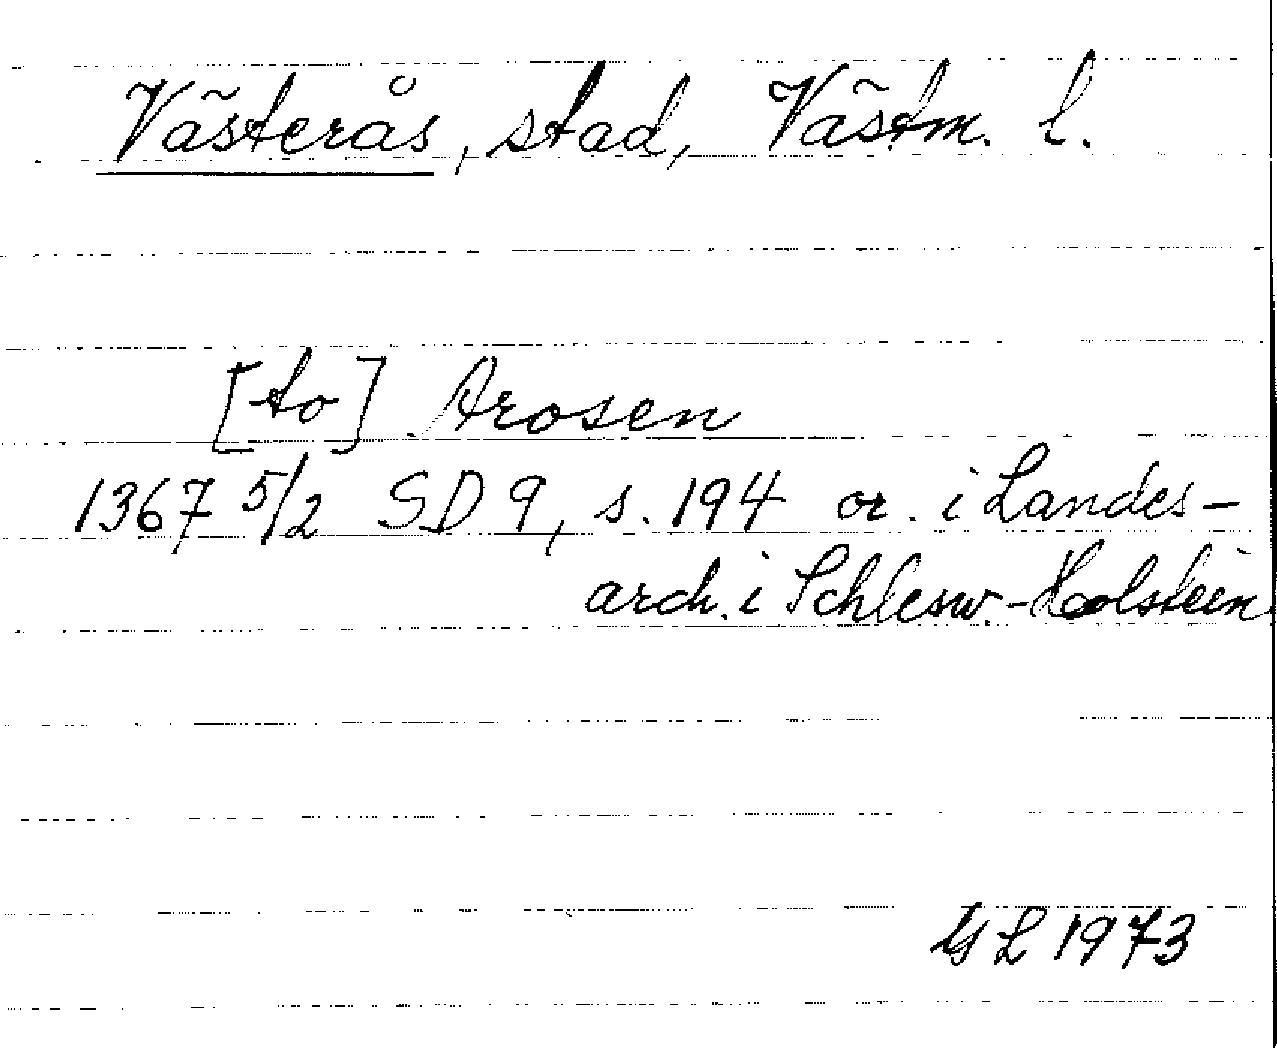 Västerås, stad, Västm. l.
[to] Arosen
1367 5/2 SD 9, s. 194 or. i Landes-
arch. i Schlesw.-Holstein
GL 1973